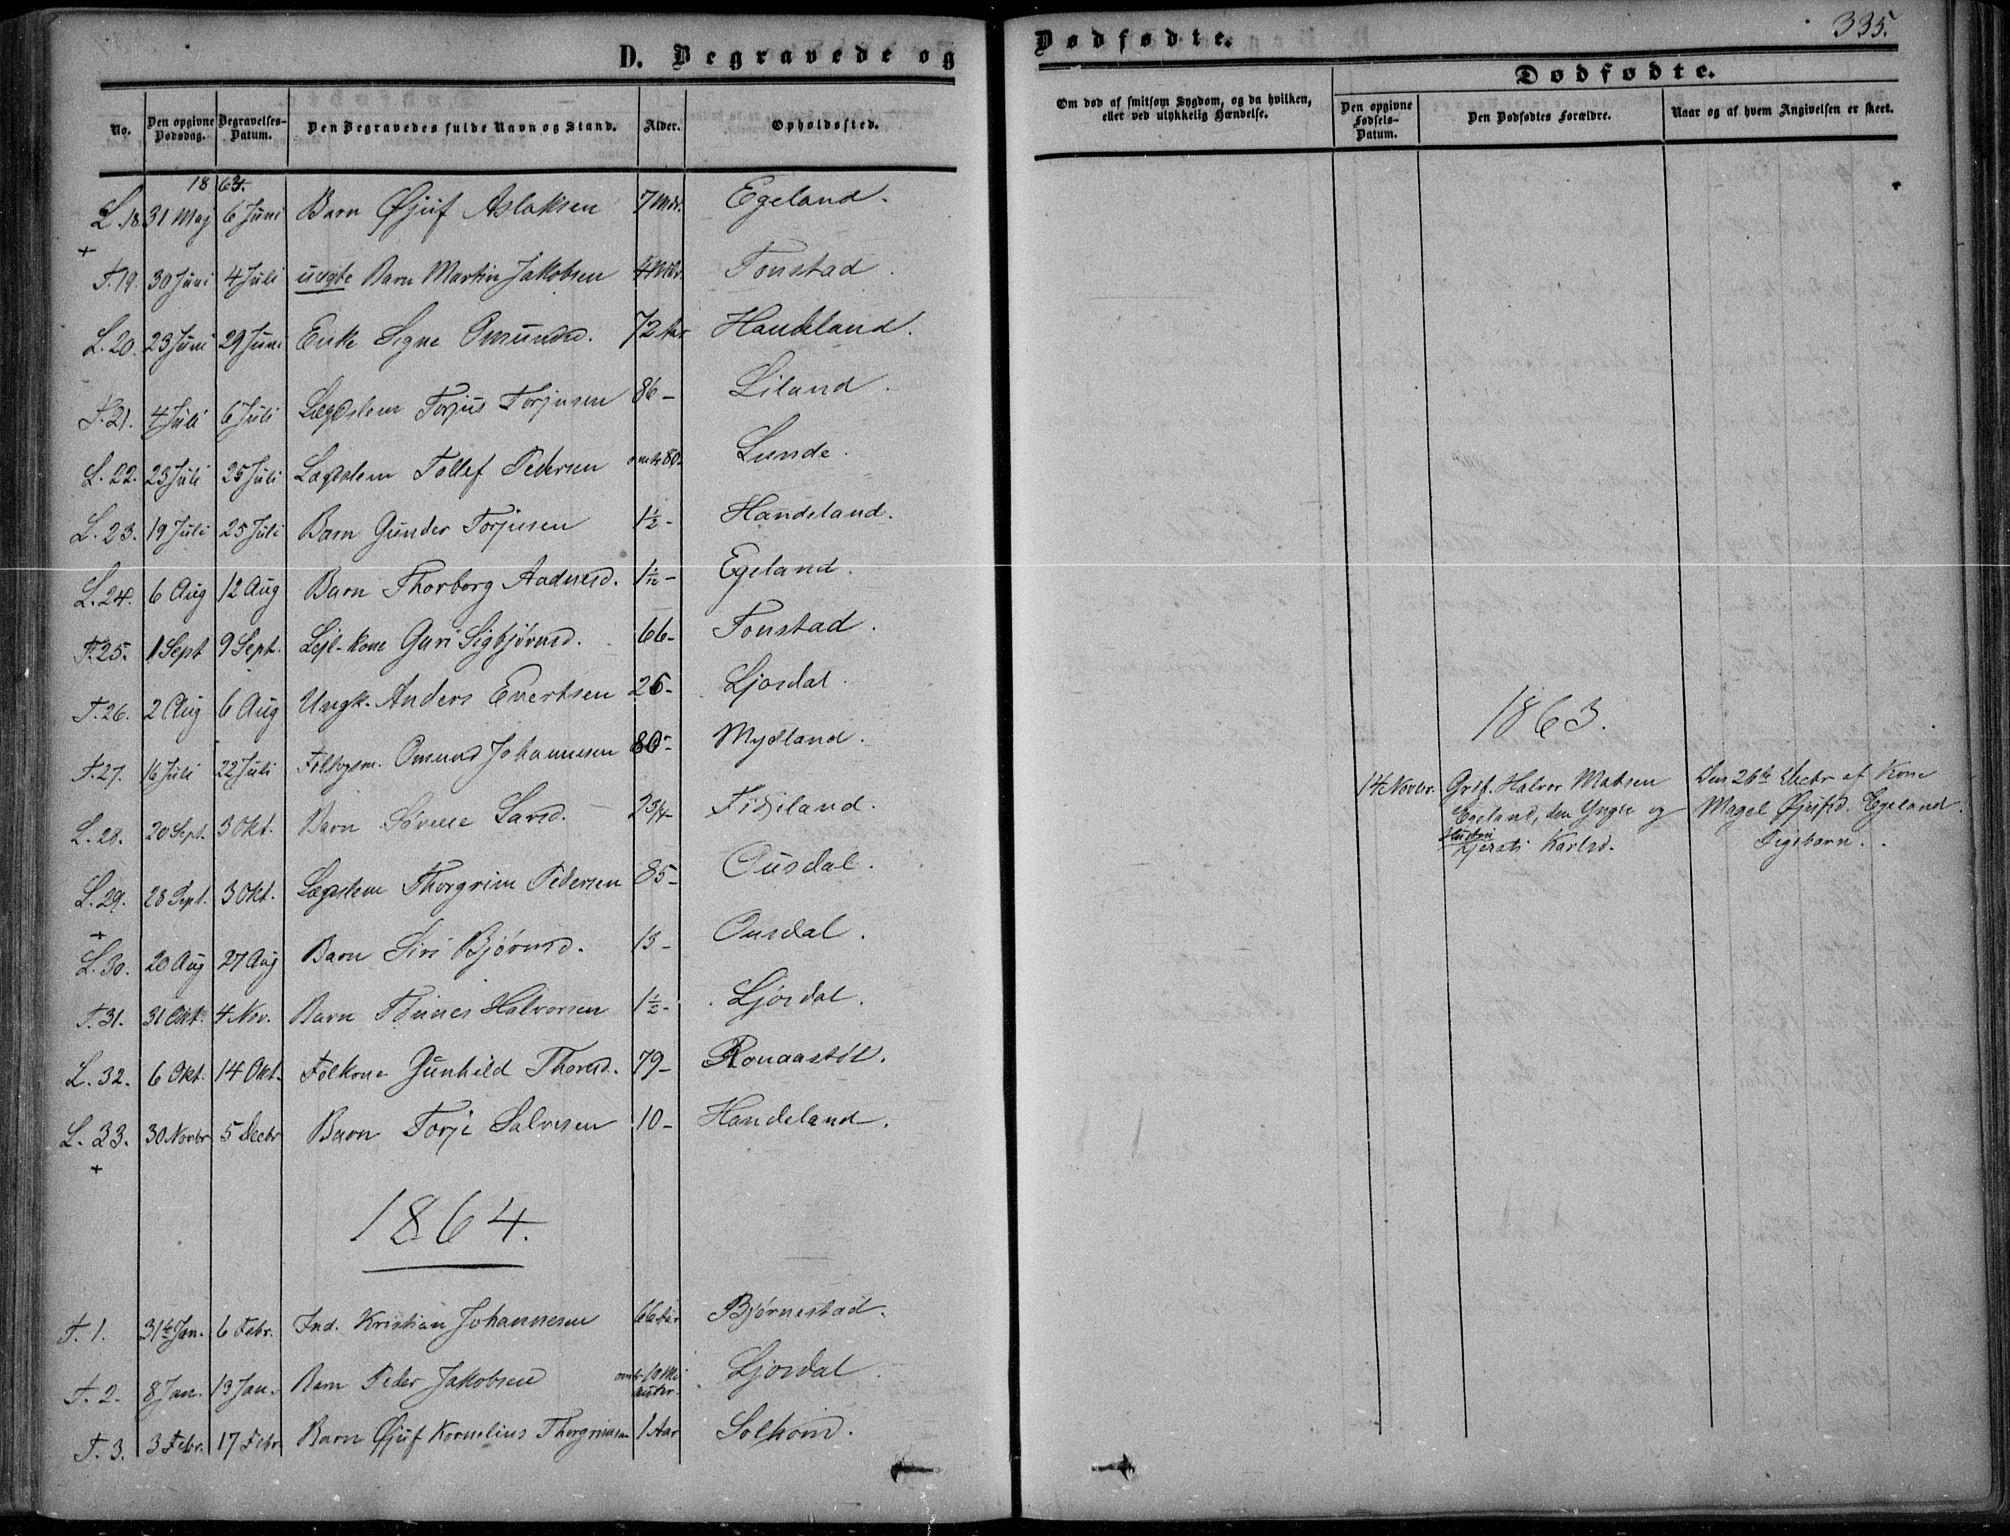 335.
D. Begravede og Dødfødte.
Dødfødte.
No.
Den opgivne Dødsdag.
Begravelses-Datum.
Den Begravedes fulde Navn og Stand.
Alder.
Opholdssted.
Om død af smitsom Sygdom, og da hvilken, eller ved ulykkelig Hændelse.
Den opgivne Fødsels-Datum.
Den Dødfødtes Forældre.
Naar og af hvem Angivelsen er skeet.
L. 18 31 Maj 6 Juni Barn Øjuf Aslaksen 7 Mdr. Egeland.
+
F. 19. 30 Juni 4 Juli uægte Barn Martin Jakobsen 4 Mdr. Tonstad.
L. 20. 23 Juni 29 Juni Enke Signe Omundsd. 72 Aar Handeland.
F. 21. 4 Juli 6 Juli Lægdslem Torjus Torjusen 86 - Liland.
L. 22. 23 Juli 25 Juli Lægdslem Tollef Pedersen omtr 80- Lunde.
L. 23. 19 Juli 25 Juli Barn Gunder Torjusen 1½ - Handeland.
L. 24. 6 Aug 12 Aug Barn Thorborg Aadnesd. Egeland.
F. 25. 1 Sept 9 Sept. Lejl-kone Guri Sigbjørnsd. 66 - Tonstad.
F. 26. 2 Aug 6 Aug Ungk. Anders Evertsen 26 - Ljosdal.
F. 27. 16 Juli 22 Juli Omund Johannesen 80 - Mydland.
L. 28. 20 Sept. 3 Okt. Barn Sørine Larsd. 2 3/4 - Fidjeland.
L. 29. 28 Sept. 3 Okt. Lægdslem Thorgrim Pedersen 85 - Ousdal.
+
L. 30. 20 Aug 27 Aug Barn Siri Bjørnsd. 13 - Ousdal.
F. 31. 31 Okt. 4 Nov. Barn Tønnes Halvorsen 1½ - Ljosdal.
L. 32. 6 Okt. 14 Okt. Følkone Gunhild Thorsd. 79 - Ronaastøl.
L. 33. 30 Novbr 5 Decbr Barn Torje Salvesen 10 - Handeland.
+
1864.
F. 1. 31te Jan. 6 Febr. Ind. Kristian Johannesen 66 Aar Bjørnestad.
F. 2. 8 Jan. 13 Jan. Barn Peder Jakobsen omtr 10 Minutter. Ljosdal.
F. 3. 3 Febr. 17 Febr. Barn Øjuf Kornelius Thorgrimsen 1 Aar Solhom.
1863.
14 Novbr. Grdf. Halvor Matsen Den 26de Decbr af Kone
Egeland, den Yngre og Magel Øjufsd. Egeland.
Hustru
Kjersti Karlsd. Pigebarn.